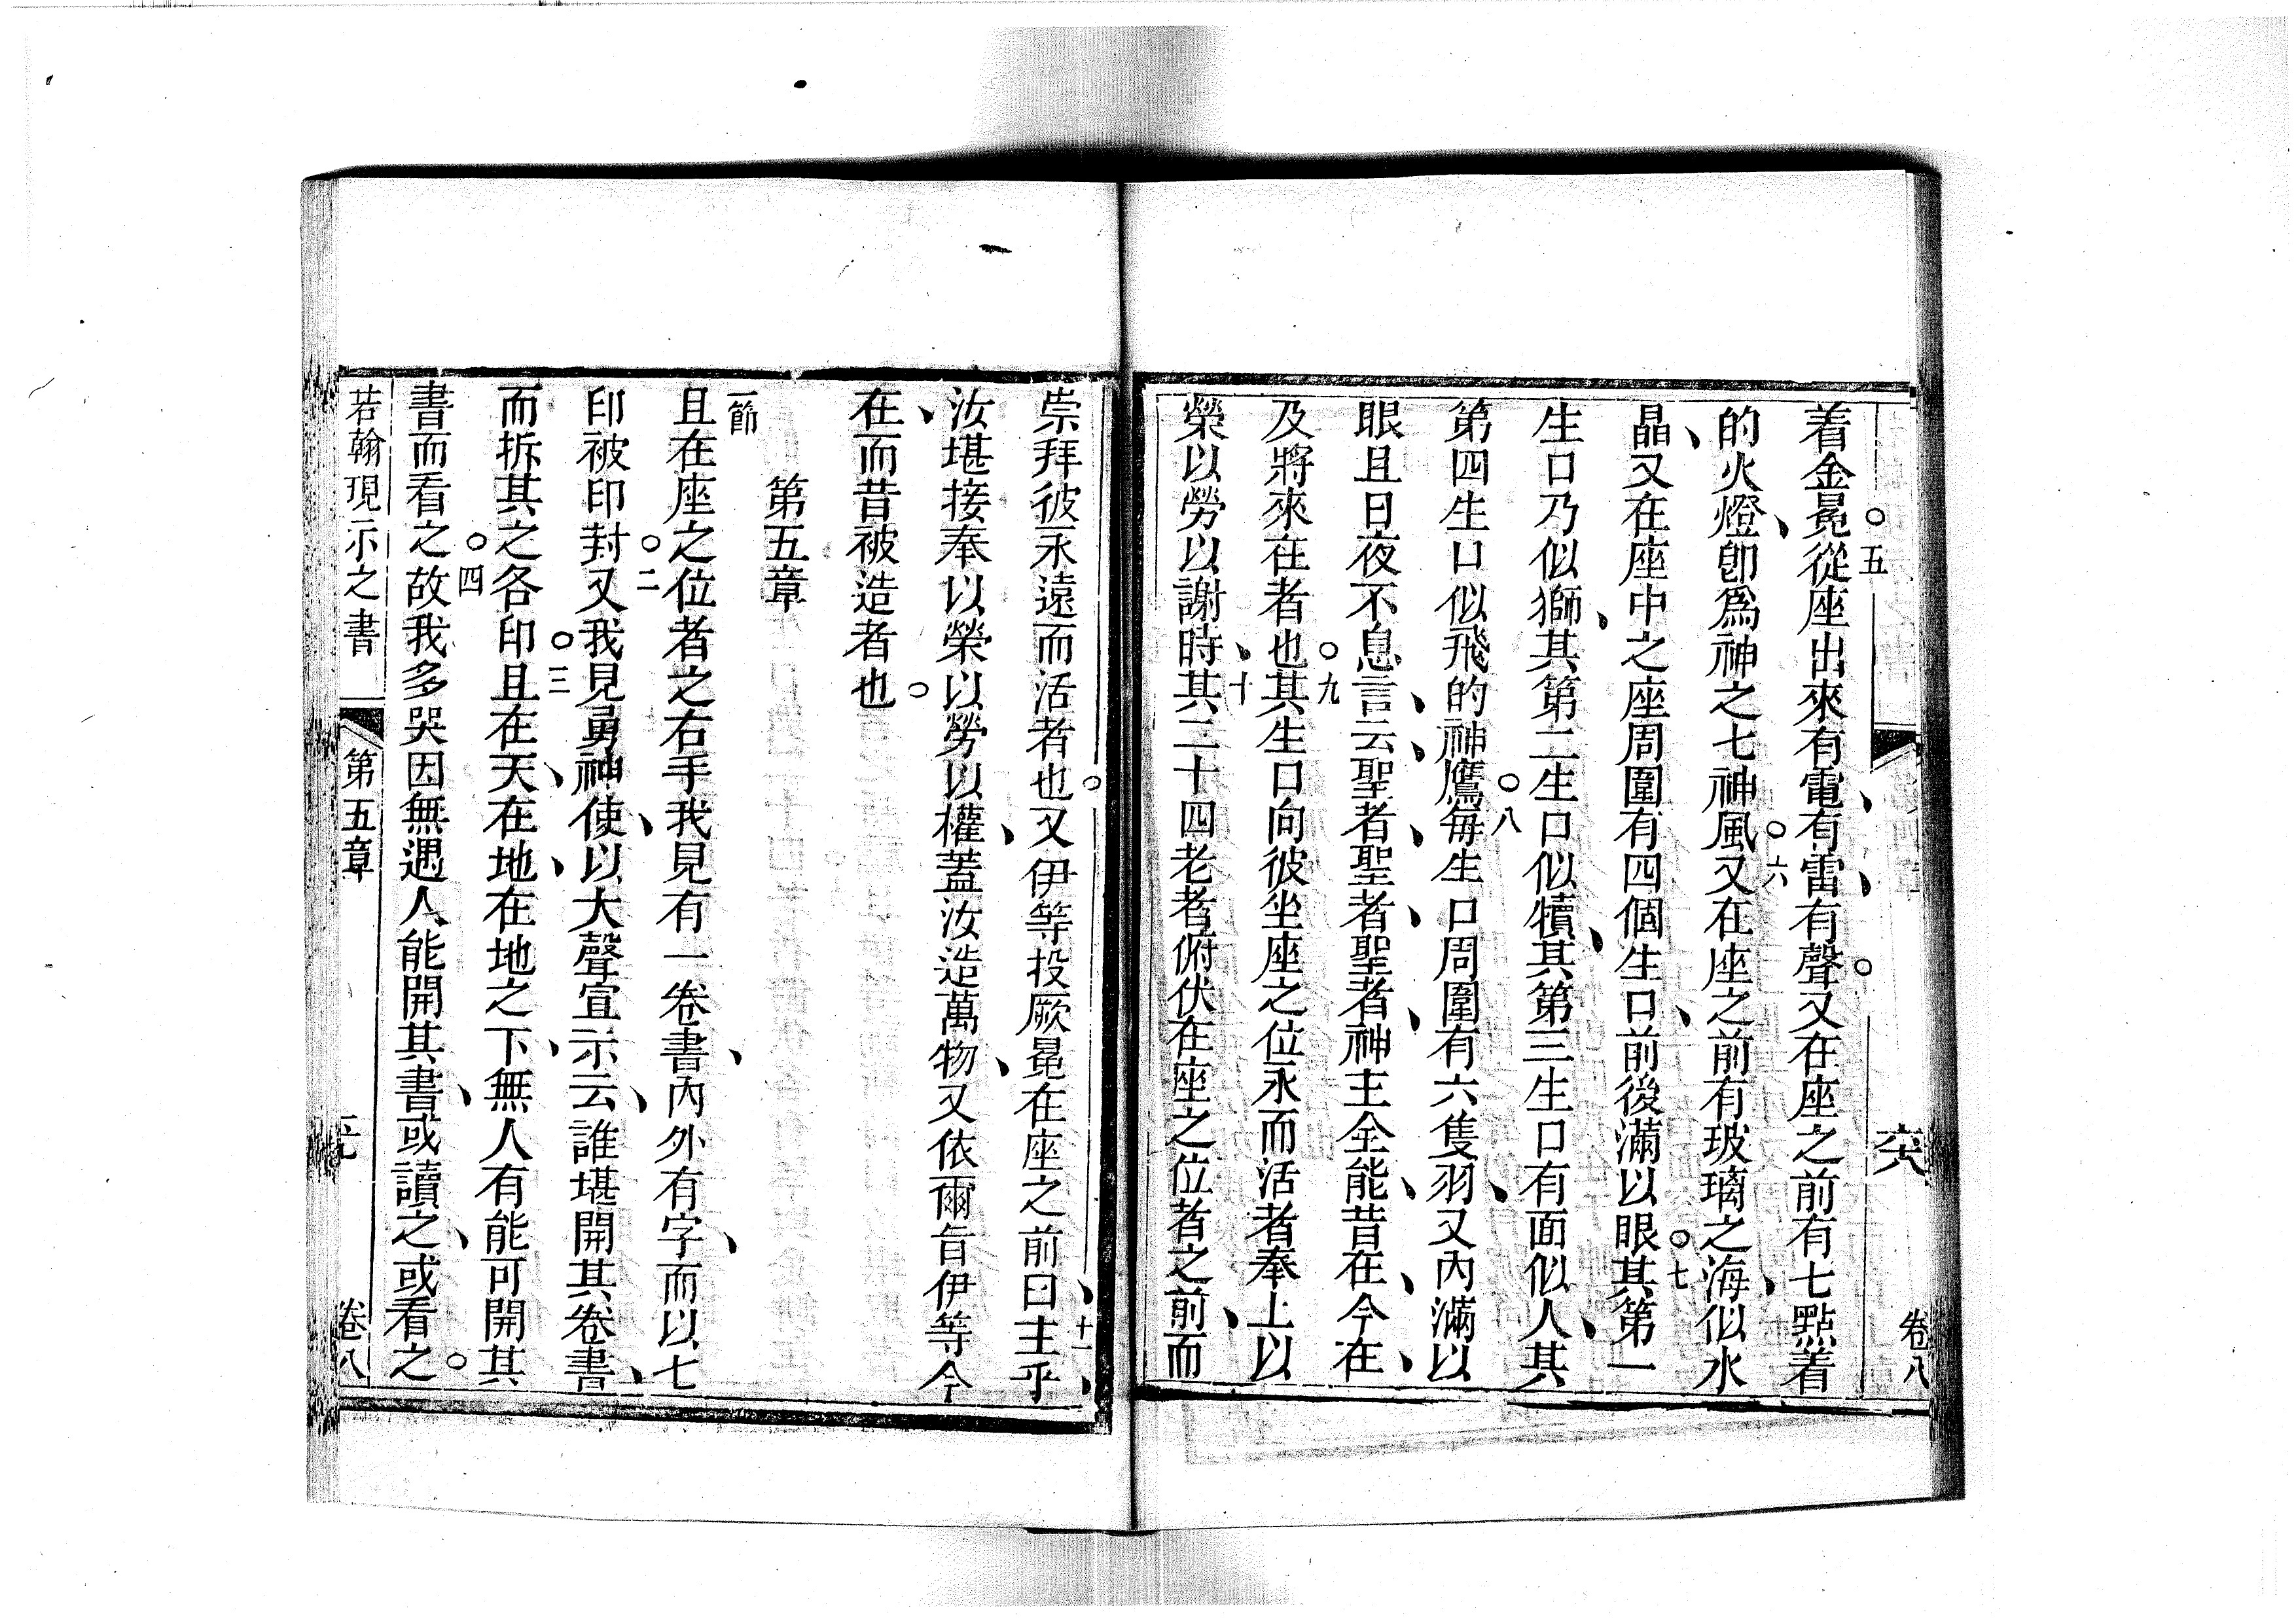 卷八
着金冕○五從座出來有電、有雷、有聲○又在座之前有七點着
的火燈、卽為神之七神風○六又在座之前有玻璃之海、似水
晶、又在座中之座周圍有四個生口、前後滿以眼○七其第一
生口乃似獅、其第二生口似犢、其第三生口有面似人、其
第四生口似飛的神鷹○八每生口周圍有六隻羽、又內滿以
眼且日夜不息、言云、聖者、聖者、聖者、神主全能、昔在、今在、
及將來在者也○九其生口向彼坐座之位永而活者奉上以
榮以勞以謝時、十其二十四老者俯伏在座之位者之前、而
崇拜彼永遠而活者也○又伊等投厥冕在座之前曰、十一主乎、
汝堪接奉以榮以勞以權、蓋汝造萬物、又依爾旨伊等今
在、而昔被造者也○
第五章
一節
且在座之位者之右手我見有一卷書、內外有字、而以七
印被印封○二又我見勇神使、以大聲宣示云、誰堪開其卷書、
而拆其之各印○三且在天、在地、在地之下、無人有能可開其
書而看之○四故我多哭因無遇人能開其書、或讀之、或看之○
若翰現示之書 第五章 卷八